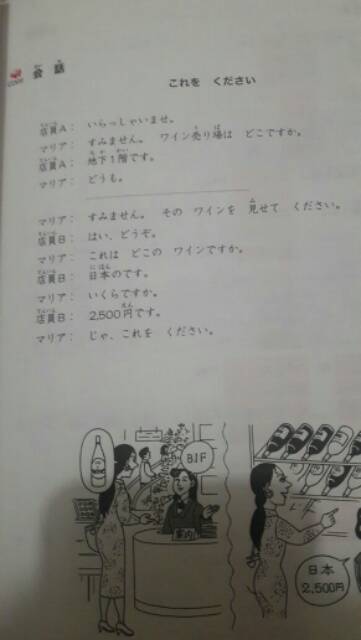 会話
これを ください
店員A： いらっしゃいませ。
マリア： すみません。 ワイン売り場は どこですか。
店員A： 地下1階です。
マリア： どうも。
マリア： すみません。 その ワインを 見せて ください。
店員B： はい、どうぞ。
マリア： これは どこの ワインですか。
店員B： 日本のです。
マリア： いくらですか。
店員B： 2,500円です。
マリア： じゃ、これを ください。
B1F
案内
日本
2,500円